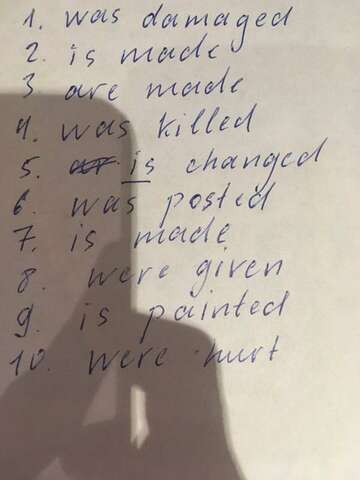 1. was damaged
2. is made
3 are made
4. was killed
5. is changed
6. was posted
7. is made
8. were given
9. is painted
10. were hurt